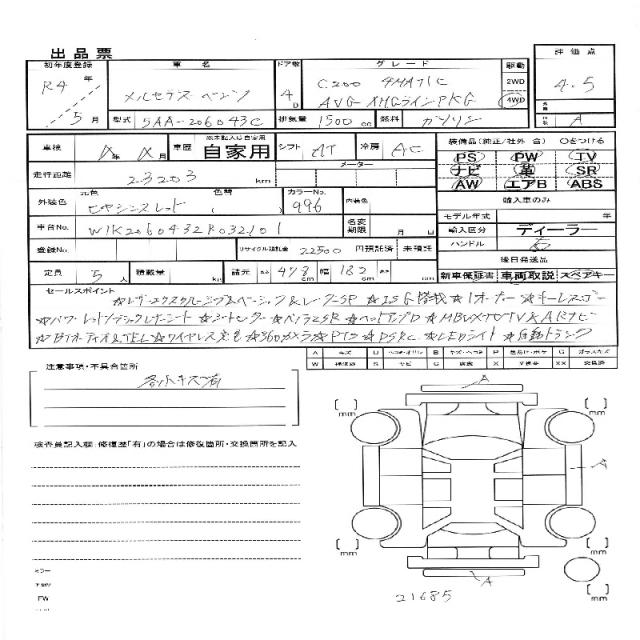 出品票
初年度登録 車名 ドア数 グレード 駆動 評価点
R4年 メルセデス・ベンツ 4D C200 4MATIC 2WD 4.5
AVG AMGラインPKG 4WD
5月 型式 5AA-206043C 排気量 1500cc 燃料 ガソリン A
車検 年 月 車歴 自家用 シフト AT 冷房 AC 装備品(純正/社外 含) ○をつける
走行距離 23203 km メーター PS PW TV
ナビ 革 SR
AW エアB ABS
外装色 元色 色替 カラーNo. 内装色
ヒヤシンスレッド ( ) 996
輸入車のみ
モデル年式 年
車台No. W1K2060432R032101 名変期限 月 日 輸入区分 ディーラー
登録No. リサイクル預託金 22500 円預託済 未預託 ハンドル 右
後日発送品
定員 5人 積載量 kg 諸元 478 幅 182 cm 新車保証書 車両取説 スペアキー
セールスポイント
★レザーエクスクルーシブ&ベーシック&レーダーSP ★ISG搭載 ★1オーナー ★キーレスゴー
★パワーレッド/ブラックレザーシート ★シートヒーター ★パノラマSR ★ヘッドアップD ★MBUX TV/TVKARナビ
★BTオーディオ&TEL ★ワイヤレス充電 ★360カメラ ★PTS ★DSRC ★LEDライト ★自動トランク
A キズ U B P G
W サビ C X XX
注意事項・不具合箇所
各小キズ有
検査員記入欄:修復歴「有」の場合は修復箇所・交換箇所を記入
A
[ ] mm
[ ] mm
A
[ ] mm
[ ] mm
A
[ ] mm
ミラー
FW
21685